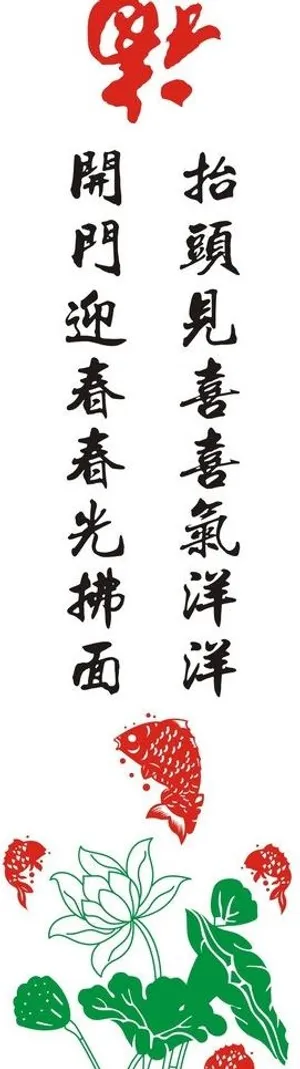 福
開門迎春春光拂面
抬頭見喜喜氣洋洋